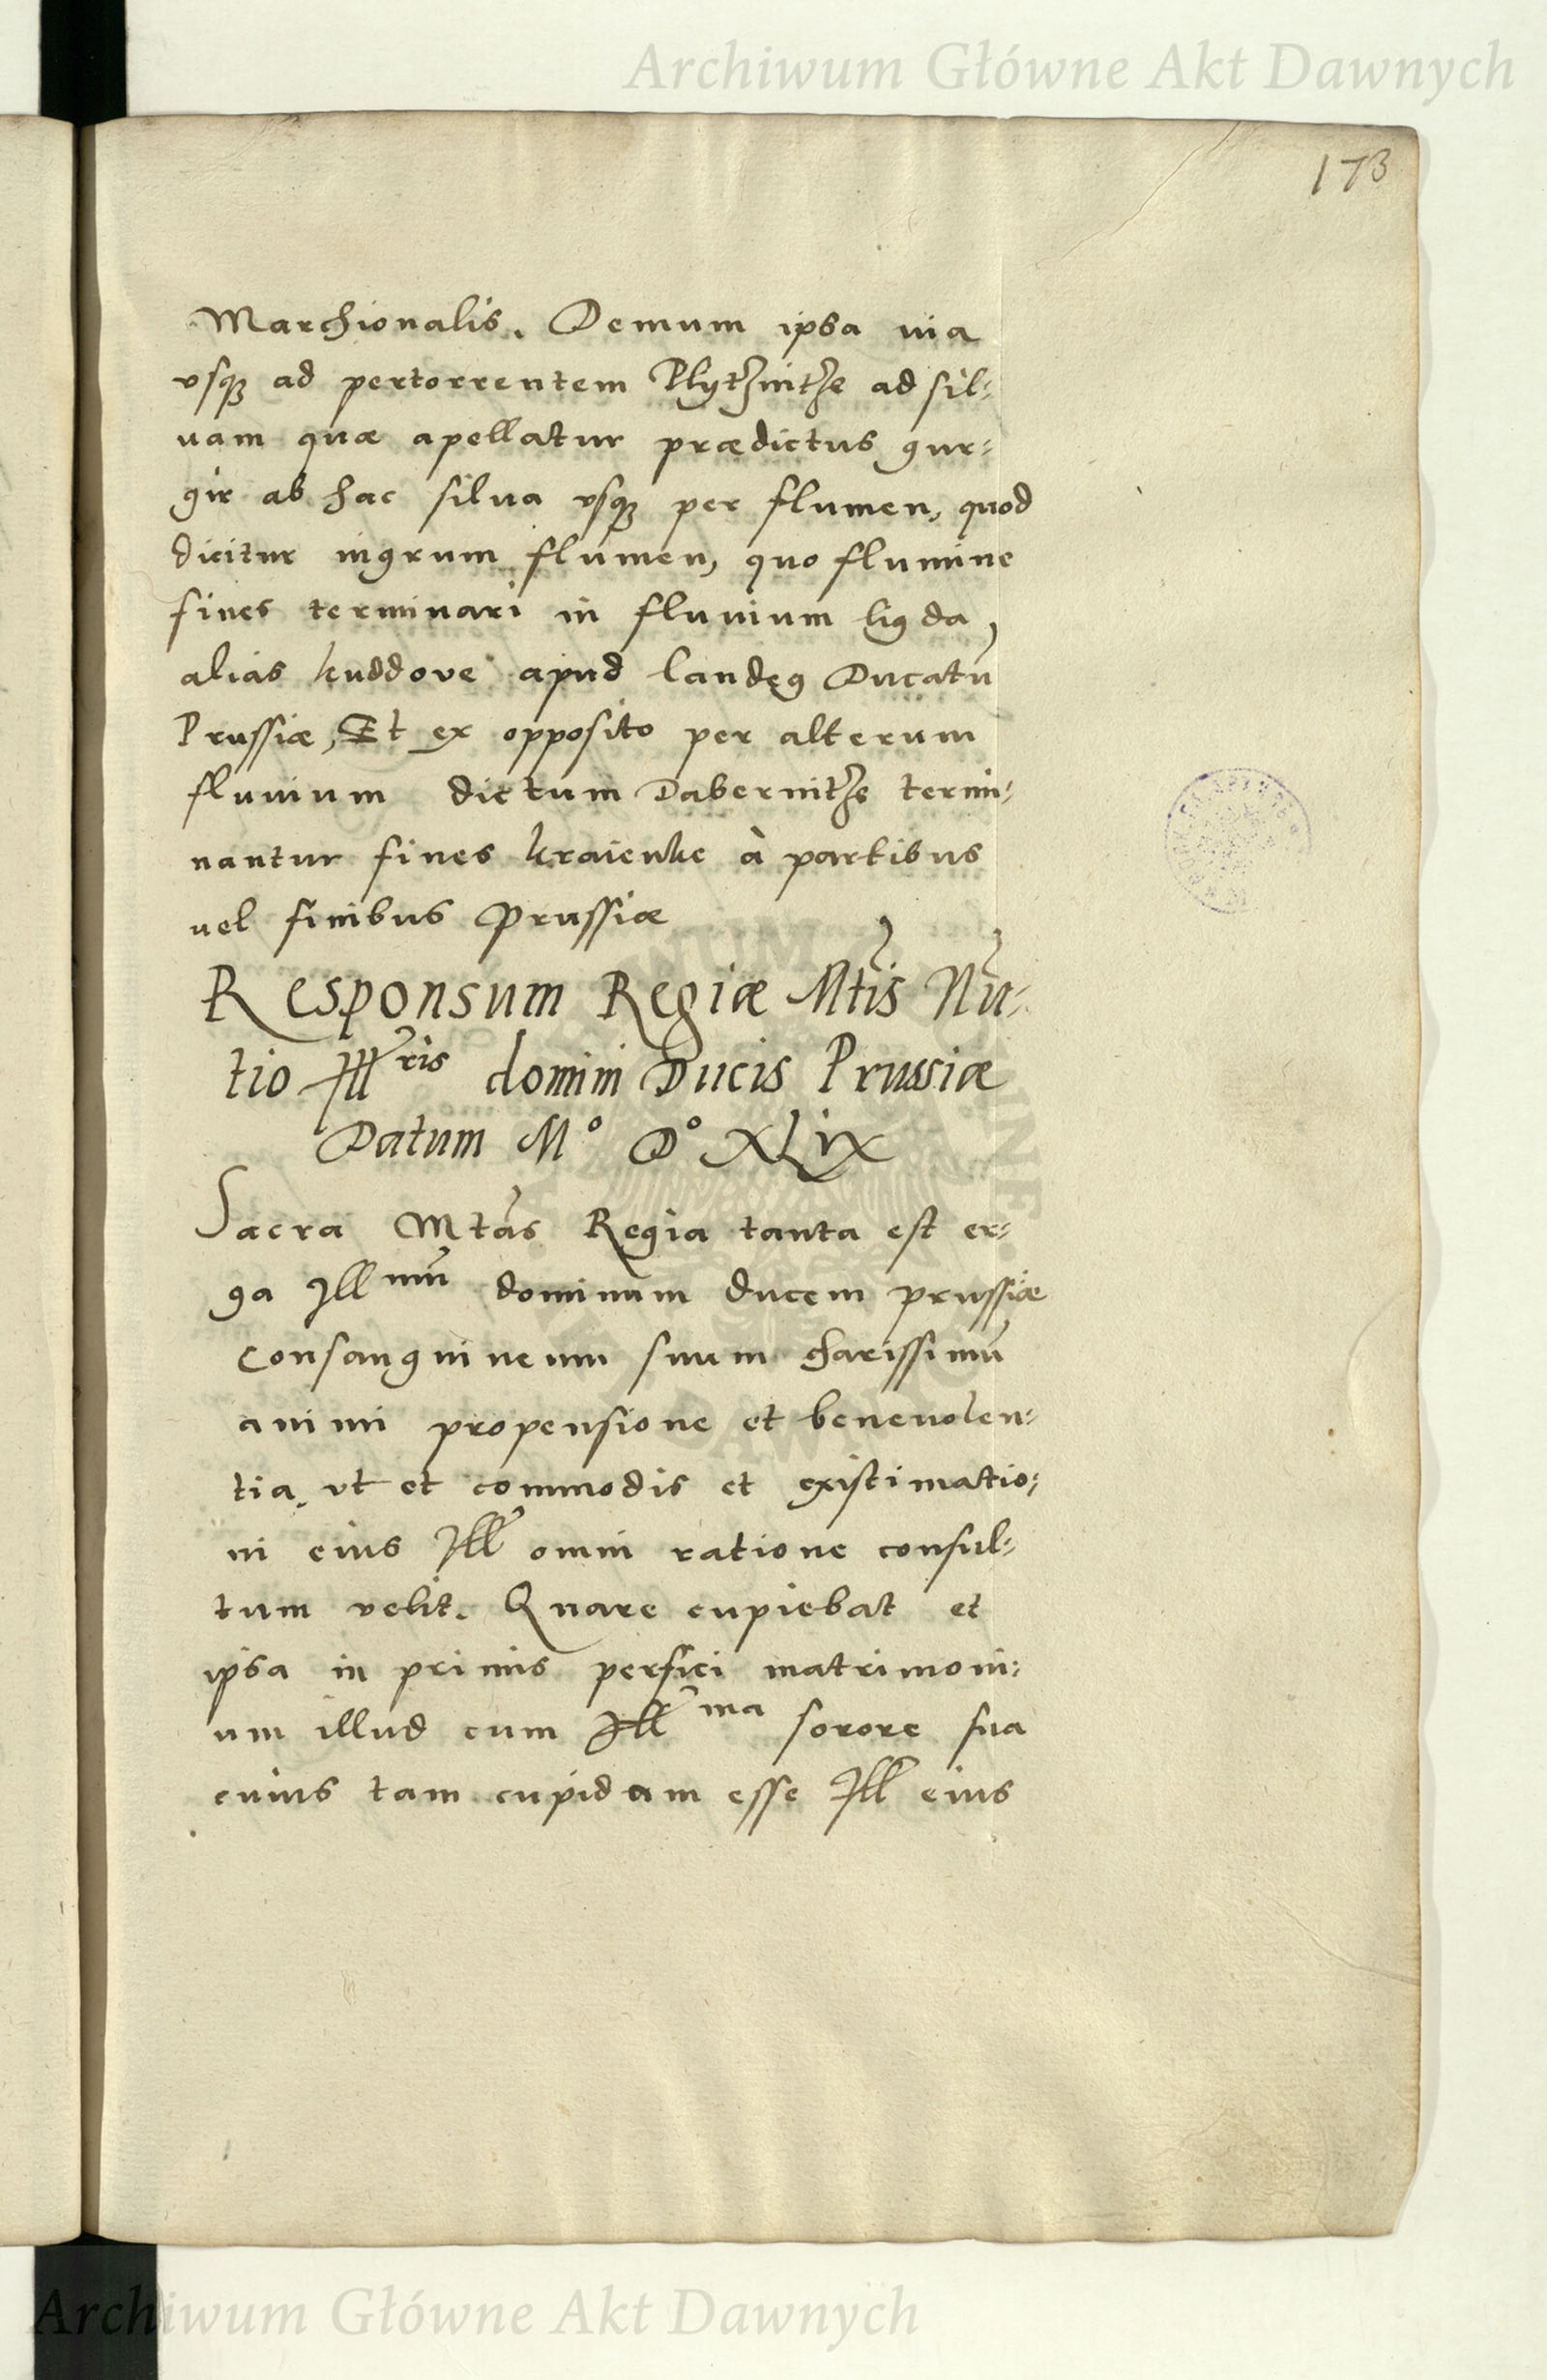 Archiwum Główne Akt Dawnych
173
Marchionalis. Demum ipsa via
vsq3 ad pertorrentem Plytznitze ad sil=
uam quæ apellatur prædictus gur=
gir ab hac silua vsq3 per flumen, quod
dicitur nigrum flumen, quo flumine
fines terminari in fluuium lig da,
alias kuddove apud landeg Ducatū
Prussiæ, Et ex opposito per alterum
fluuium dictum Dabernitze termi=
nantur fines kraienke à partibus
uel finibus Prussiæ
Responsum Regiæ Mtis Nū=
tio Illris domini Ducis Prussiæ
Datum M° D° XLix
Sacra Mtas Regia tanta est er=
ga Illmū dominum ducem prussiæ
Consanguineum suum charissimū
animi propensione et beneuolen=
tia, vt et commodis et existimatio=
ni eius Ill omni ratione consul=
tum velit. Quare cupiebat et
ipsa in primis perfici matrimoni=
um illud cum Illma sorore sua
cuius tam cupidam esse Ill eius
Archiwum Główne Akt Dawnych